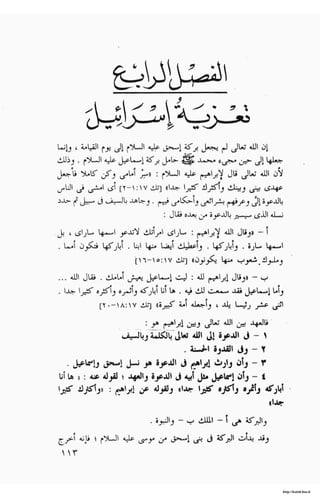 الفصل الرابع
تعزية إسرائيل
إن الله تعالى لم يجعل بركة إسحق عليه السلام إلى يوم القيامة ، وإنما
جعلها إلى حين مجىء محمد ﷺ حامل بركة إسماعيل عليه السلام . وذلك
لأن الله تعالى قال لإبراهيم عليه السلام : «سر أمامى وكن كاملا ، فأجعل
عهدى بينى وبينك وأكثرك كثيرا جدا» [تك ١٧:١-٢] أى امشى فى الناس
بالدعوة إلىّ وعرفهم بشرائعى وأحكامى . وجاهد بالسيف فى سبيل
نسله الذى سيسير بالدعوة من بعده ؛ فقال :
أ – «وقال الله لإبراهيم : ساراى امرأتك لاتدعو اسمها ساراى ، بل
اسمها سارة . وأباركها . وأعطيك أيضا منها ابنا . أباركها فتكون أمما .
وملوك شعوب منها يكونون» [تك ١٧:١٥-١٦]
ب – «وقال إبراهيم لله : ليت إسماعيل يعيش أمامك . فقال الله ...
وأما إسماعيل فقد سمعت لك فيه . ها أنا أباركه وأثمره وأكثره كثيرا جدا .
اثنى عشر رئيسا يلد ، وأجعله أمة كبيرة» [تك ١٧:١٨-٢٠]
فالعهد بين الله تعالى وبين إبراهيم هو :
١ – فى الدعوة إلى الله تعالى بالكلمة وبالسيف
٢ – وفى القدوة الحسنة .
٣ – وأن وارث إبراهيم فى الدعوة هو نسل إسحق وإسماعيل .
٤ – وأن إسماعيل مثل أبيه فى الدعوة والعهد ؛ لقوله عنه : «ها أنا
أباركه وأثمره وأكثره كثيرا جدا» ولقوله عن إبراهيم : «وأكثرك كثيرا
جدا»
والبركة هى أ – الملك ب – والنبوة .
وقد بدأت البركة فى بنى إسحق من موسى عليه السلام ؛ فإنه أخرج
١١٣
http://kotob.has.it